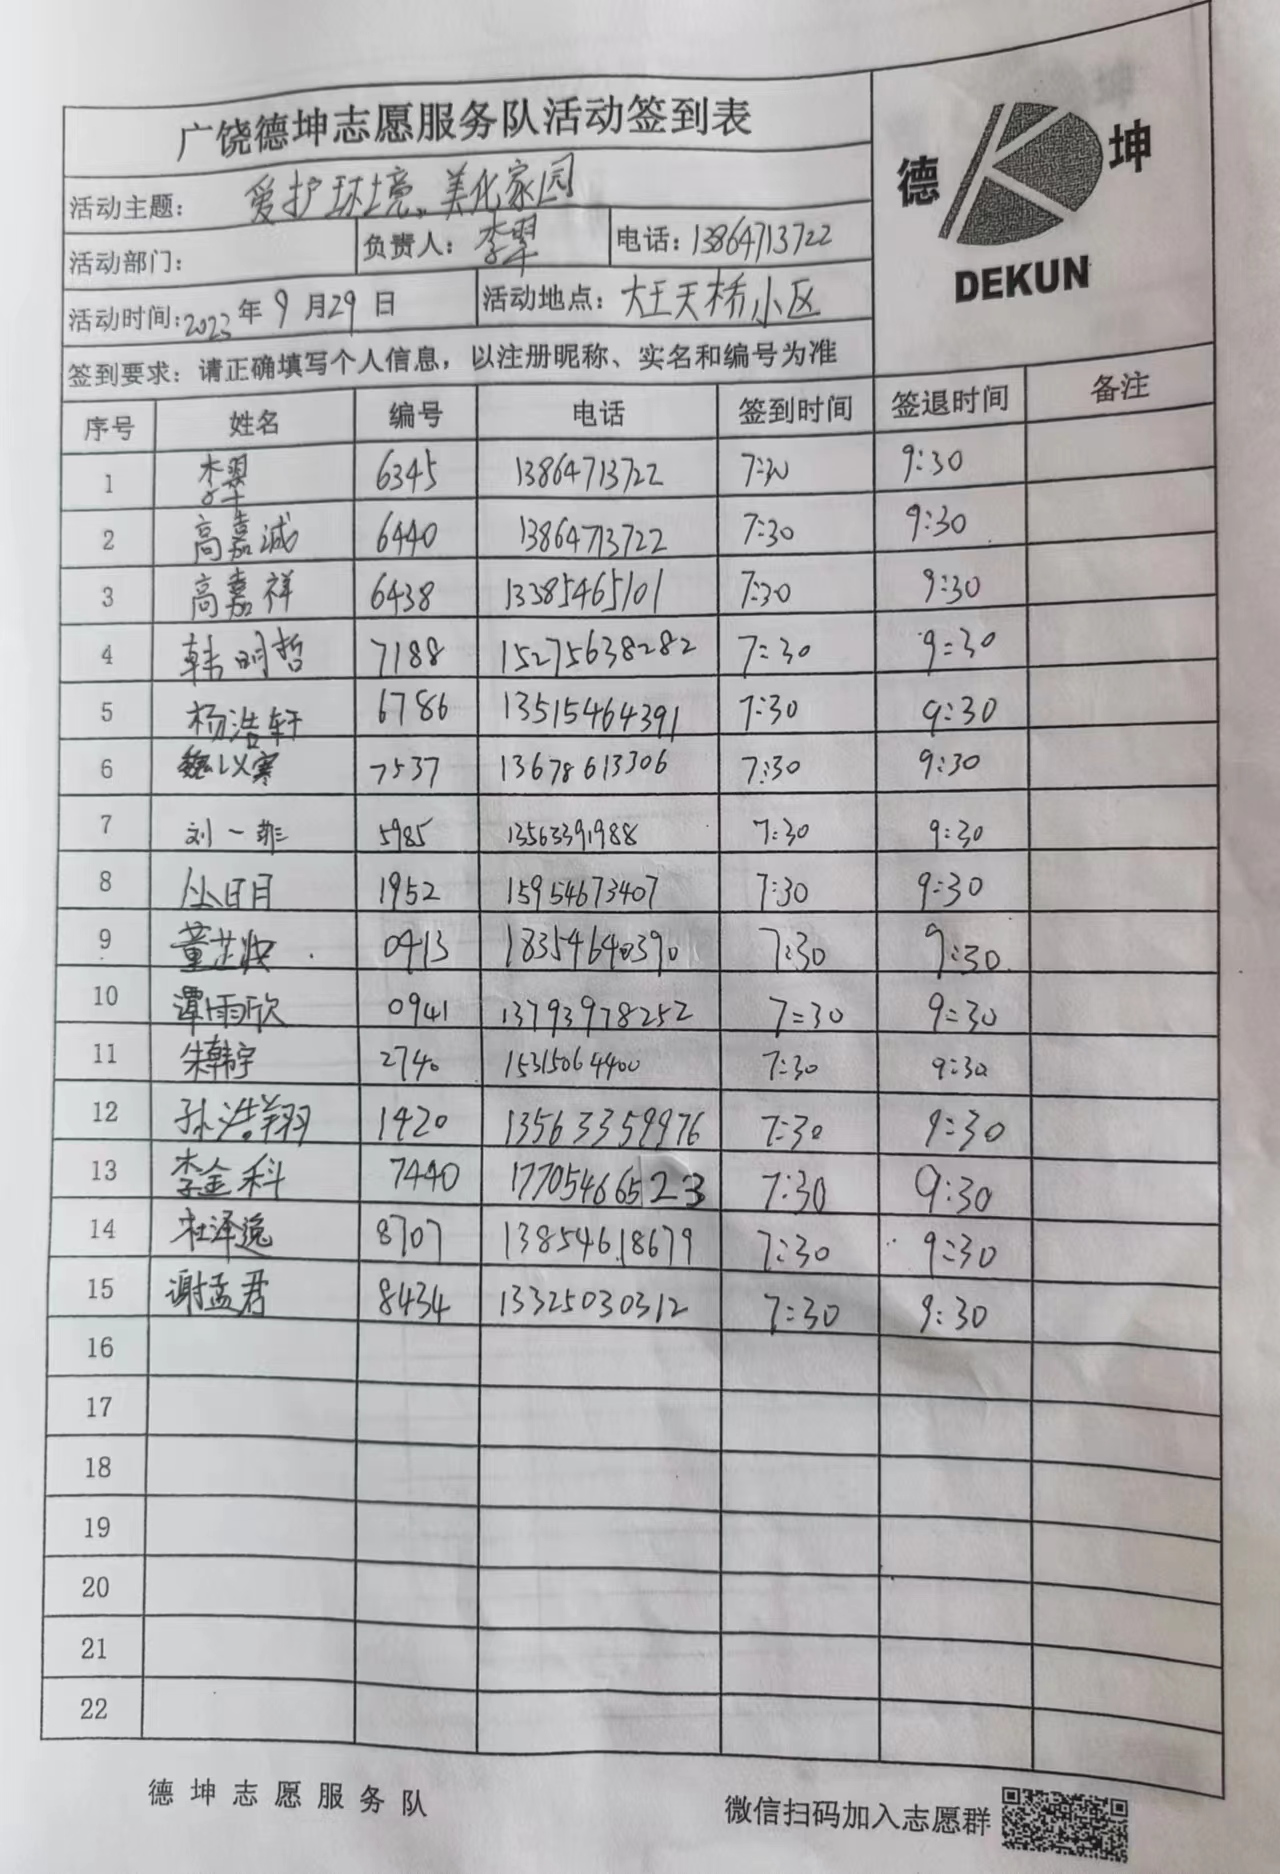 广饶德坤志愿服务队活动签到表
德 坤
DEKUN
活动主题: 爱护环境、美化家园
活动部门: 负责人: 李翠 电话: 13864713722
活动时间: 2023年9月29日 活动地点: 大王天桥小区
签到要求: 请正确填写个人信息, 以注册昵称、实名和编号为准
序号 姓名 编号 电话 签到时间 签退时间 备注
1 李翠 6345 13864713722 7:30 9:30
2 高嘉诚 6440 13864713722 7:30 9:30
3 高嘉祥 6438 13385465101 7:30 9:30
4 韩明哲 7188 15275638282 7:30 9:30
5 杨浩轩 6786 13515464391 7:30 9:30
6 魏以寒 7537 13678613306 7:30 9:30
7 刘一菲 5985 13563391988 7:30 9:30
8 1952 15954673407 7:30 9:30
9 0413 18354640390 7:30 9:30
10 谭雨欣 0941 13793978252 7:30 9:30
11 朱韩宇 2740 15315064400 7:30 9:30
12 孙浩翔 1420 13563359976 7:30 9:30
13 李金科 7440 17705466523 7:30 9:30
14 杜泽逸 8707 13854618679 7:30 9:30
15 谢孟君 8434 13325030312 7:30 9:30
16
17
18
19
20
21
22
德坤志愿服务队 微信扫码加入志愿群